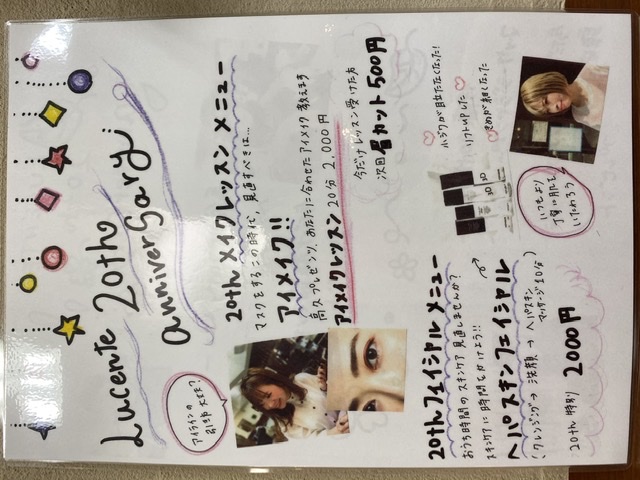 Lucente 20th
anniversary
アイラインの
引き方 大丈夫?
20th メイクレッスン メニュー
マスクをするこの時代、見直すべきは…
アイメイク!!
高久プレゼンツ、あなたに合わせたアイメイク教えます
アイメイクレッスン 20分 2,000円
今だけレッスン受けた方
次回 眉カット 500円
20th フェイシャル メニュー
おうち時間のスキンケア 見直しませんか?
スキンケアに時間をかけよう!!
ヘパスキンフェイシャル
(クレンジング → 洗顔 → ヘパスキン
マッサージ 10分)
20th 特別 2000円
小ジワが目立たなくなった!
リフトupした
きめが細くなった
いつもより
丁寧に肌を
いたわろう